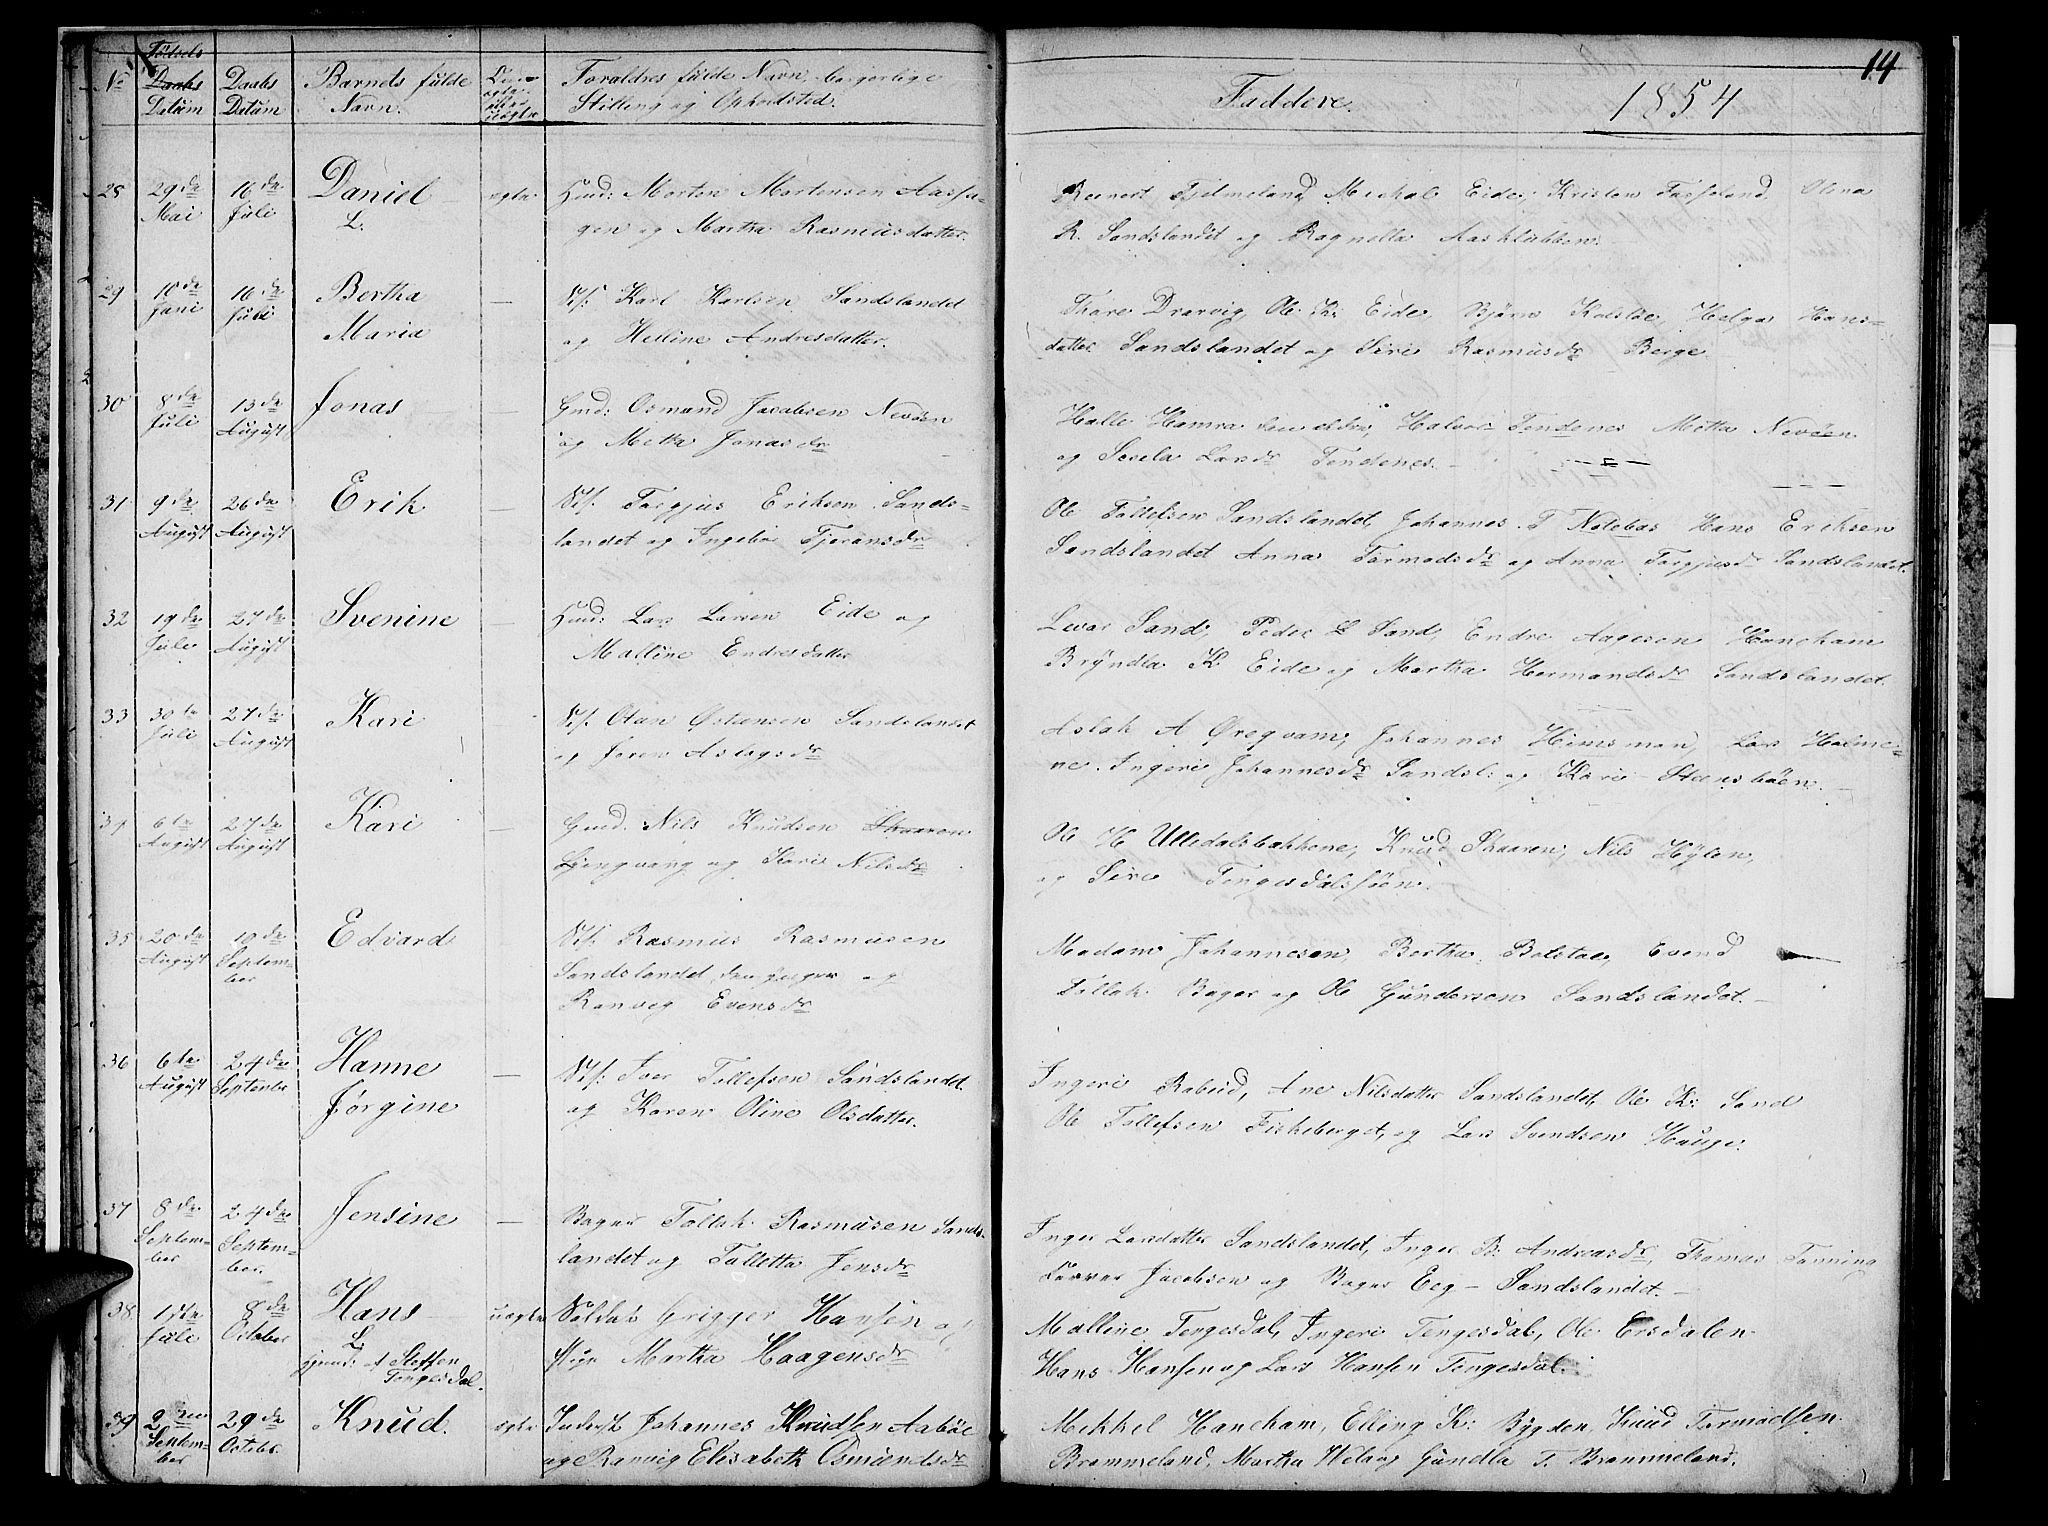 14
Fødsels
No Daabs Datum Daabs Datum Barnets fulde Navn. Forældres fulde Navn borgerlige Stilling og Opholdsted.
Faddere. 1854
28 29de Mai 16de Juli Daniel ægte Huud: Morten Mortensen
L. gen og Martha Rasmusdatter.
Reinert Tjelmeland, Mickal Eide, Kristen Olena
R. Sandslandet og Ragnella
29 10de Juni 16de Juli Bertha — Karl Karlsen Sandslandet
Maria og Helline Andresdatter.
Thore Drarvig, Ole K: Eide, Bjørn Kolstøe, Helga Hans-
datter Sandslandet og Siri Rasmusdr Berge
30 8de Juli 13de August Jonas — Gmd: Osmund Jacobsen Nevøen
og Metta Jonasdr
Halle Hamra Halvor Tendenes Mitta Nevøen
og Larsdr Tendenes. —
31 9de August 26de August Erik — Torgjus Eriksen Sands-
landet og Ingebor Tjeransdr
Ole Tollefsen Sandslandet, Johannes T Hans Eriksen
Sandslandet Anna Tormodsdr og Anna Torgjusdr Sandslandet.
32 19de Juli 27de August Svenine — Huud: Lars Larsen Eide og
Malline Endresdatter
Levar Sand, Peder L Sand, Endre Aagesen Haneham
Bryndla K. Eide og Martha Hermandsdr Sandslandet.
33 30te Juli 27de August Kari — Østensen Sandslandet
og Joren Aslagsdr
Aslak A Øregvam, Johannes Lars Holme-
ne. Ingeri Johannesdr Sandsl: og Kari Steensbøen. —
34 6te August 27de August Kari — Gmd. Nils Knudsen Skaaren
og Kari Nilsdr
Ole H Ulledalsbakkene, Knud Skaaren, Nils Hylen,
og Siri
35 20de August 10de September Edvard Rasmus Rasmusen
Sandslandet den yngre og
Ranveig Evensdr
Madam Johannesen Bertha Evend
Tollak Bager og Ole Gundersen Sandslandet. —
36 6te August 24de Septenbr Hanne — Iver Tollefsen Sandslandet
Jørgine og Karen Oline Olsdatter.
Ingeri Rabud, Ane Nilsdatter Sandslandet, Ole K: Sand
Ole Tollefsen Fiskeberget, og Lars Svendsen Hauge.
37 8de September 24de September. Jensine — Bager Tollak Rasmusen Sands-
landet og Talletta Jensdr
Inger Larsdatter Sandslandet, Inger B. Andreasdr, Thomas
Jacobsen og Bager Eeg — Sandslandet. —
38 Juli 8de October Hans uægte Soldat Grigger Hansen og
L Pige Martha Haagensdr
Steffen
Tengesdal.
Malline Tengesdal, Ingeri Tengesdal, Ole Ersdalen
Hans Hansen og Lars Hansen Tengesdal.
39 2den September 29de October Knud. ægte Inderst Johannes Knudsen Aabøe
og Ranvig Elisabeth Osmundsdr
Mekkel Haneham, Elling K: Bygden, Knud Tormodsen
Brommeland, Martha og Gunella T. Brommeland.